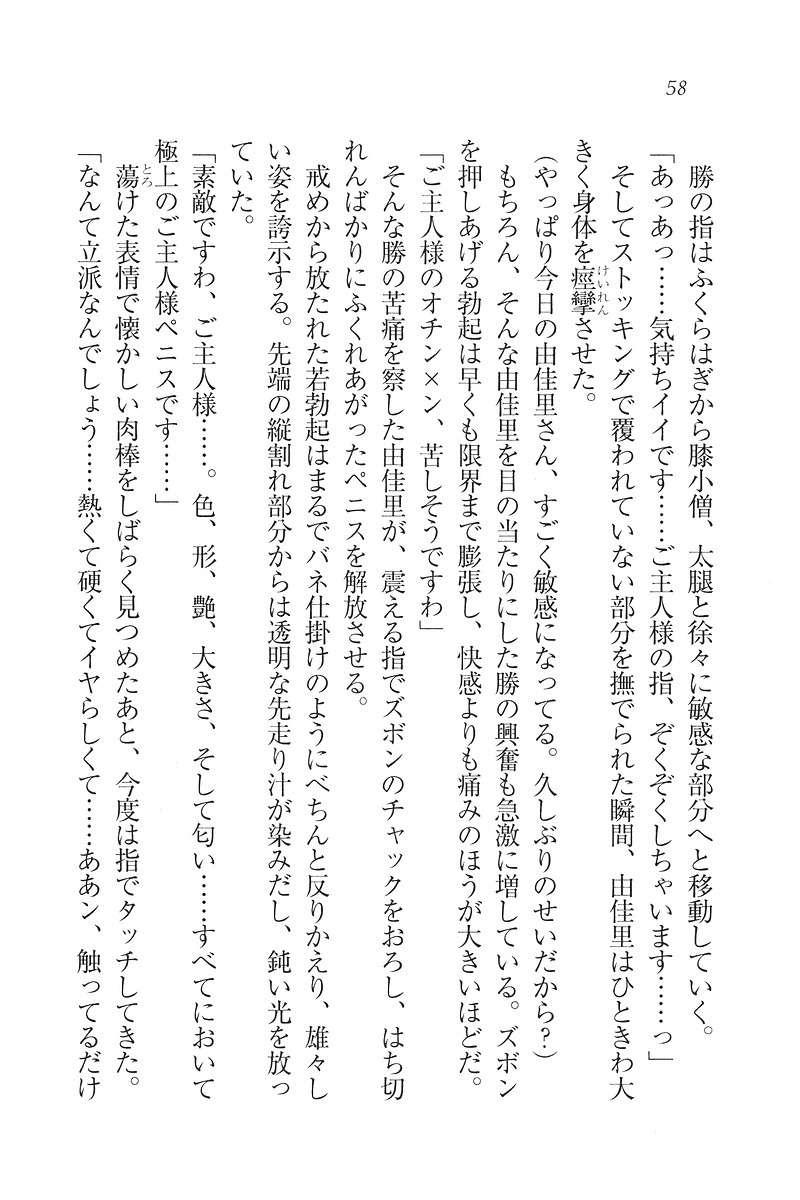 58
勝の指はふくらはぎから膝小僧、太腿と徐々に敏感な部分へと移動していく。
「あっあっ……気持ちイイです……ご主人様の指、ぞくぞくしちゃいます……っ」
そしてストッキングで覆われていない部分を撫でられた瞬間、由佳里はひときわ大
きく身体を痙攣させた。
(やっぱり今日の由佳里さん、すごく敏感になってる。久しぶりのせいだから?)
もちろん、そんな由佳里を目の当たりにした勝の興奮も急激に増している。ズボン
を押しあげる勃起は早くも限界まで膨張し、快感よりも痛みのほうが大きいほどだ。
「ご主人様のオチン×ン、苦しそうですわ」
そんな勝の苦痛を察した由佳里が、震える指でズボンのチャックをおろし、はち切
れんばかりにふくれあがったペニスを解放させる。
戒めから放たれた若勃起はまるでバネ仕掛けのようにべちんと反りかえり、雄々し
い姿を誇示する。先端の縦割れ部分からは透明な先走り汁が染みだし、鈍い光を放っ
ていた。
「素敵ですわ、ご主人様……。色、形、艶、大きさ、そして匂い……すべてにおいて
極上のご主人様ペニスです……」
蕩けた表情で懐かしい肉棒をしばらく見つめたあと、今度は指でタッチしてきた。
「なんて立派なんでしょう……熱くて硬くてイヤらしくて……ああン、触ってるだけ